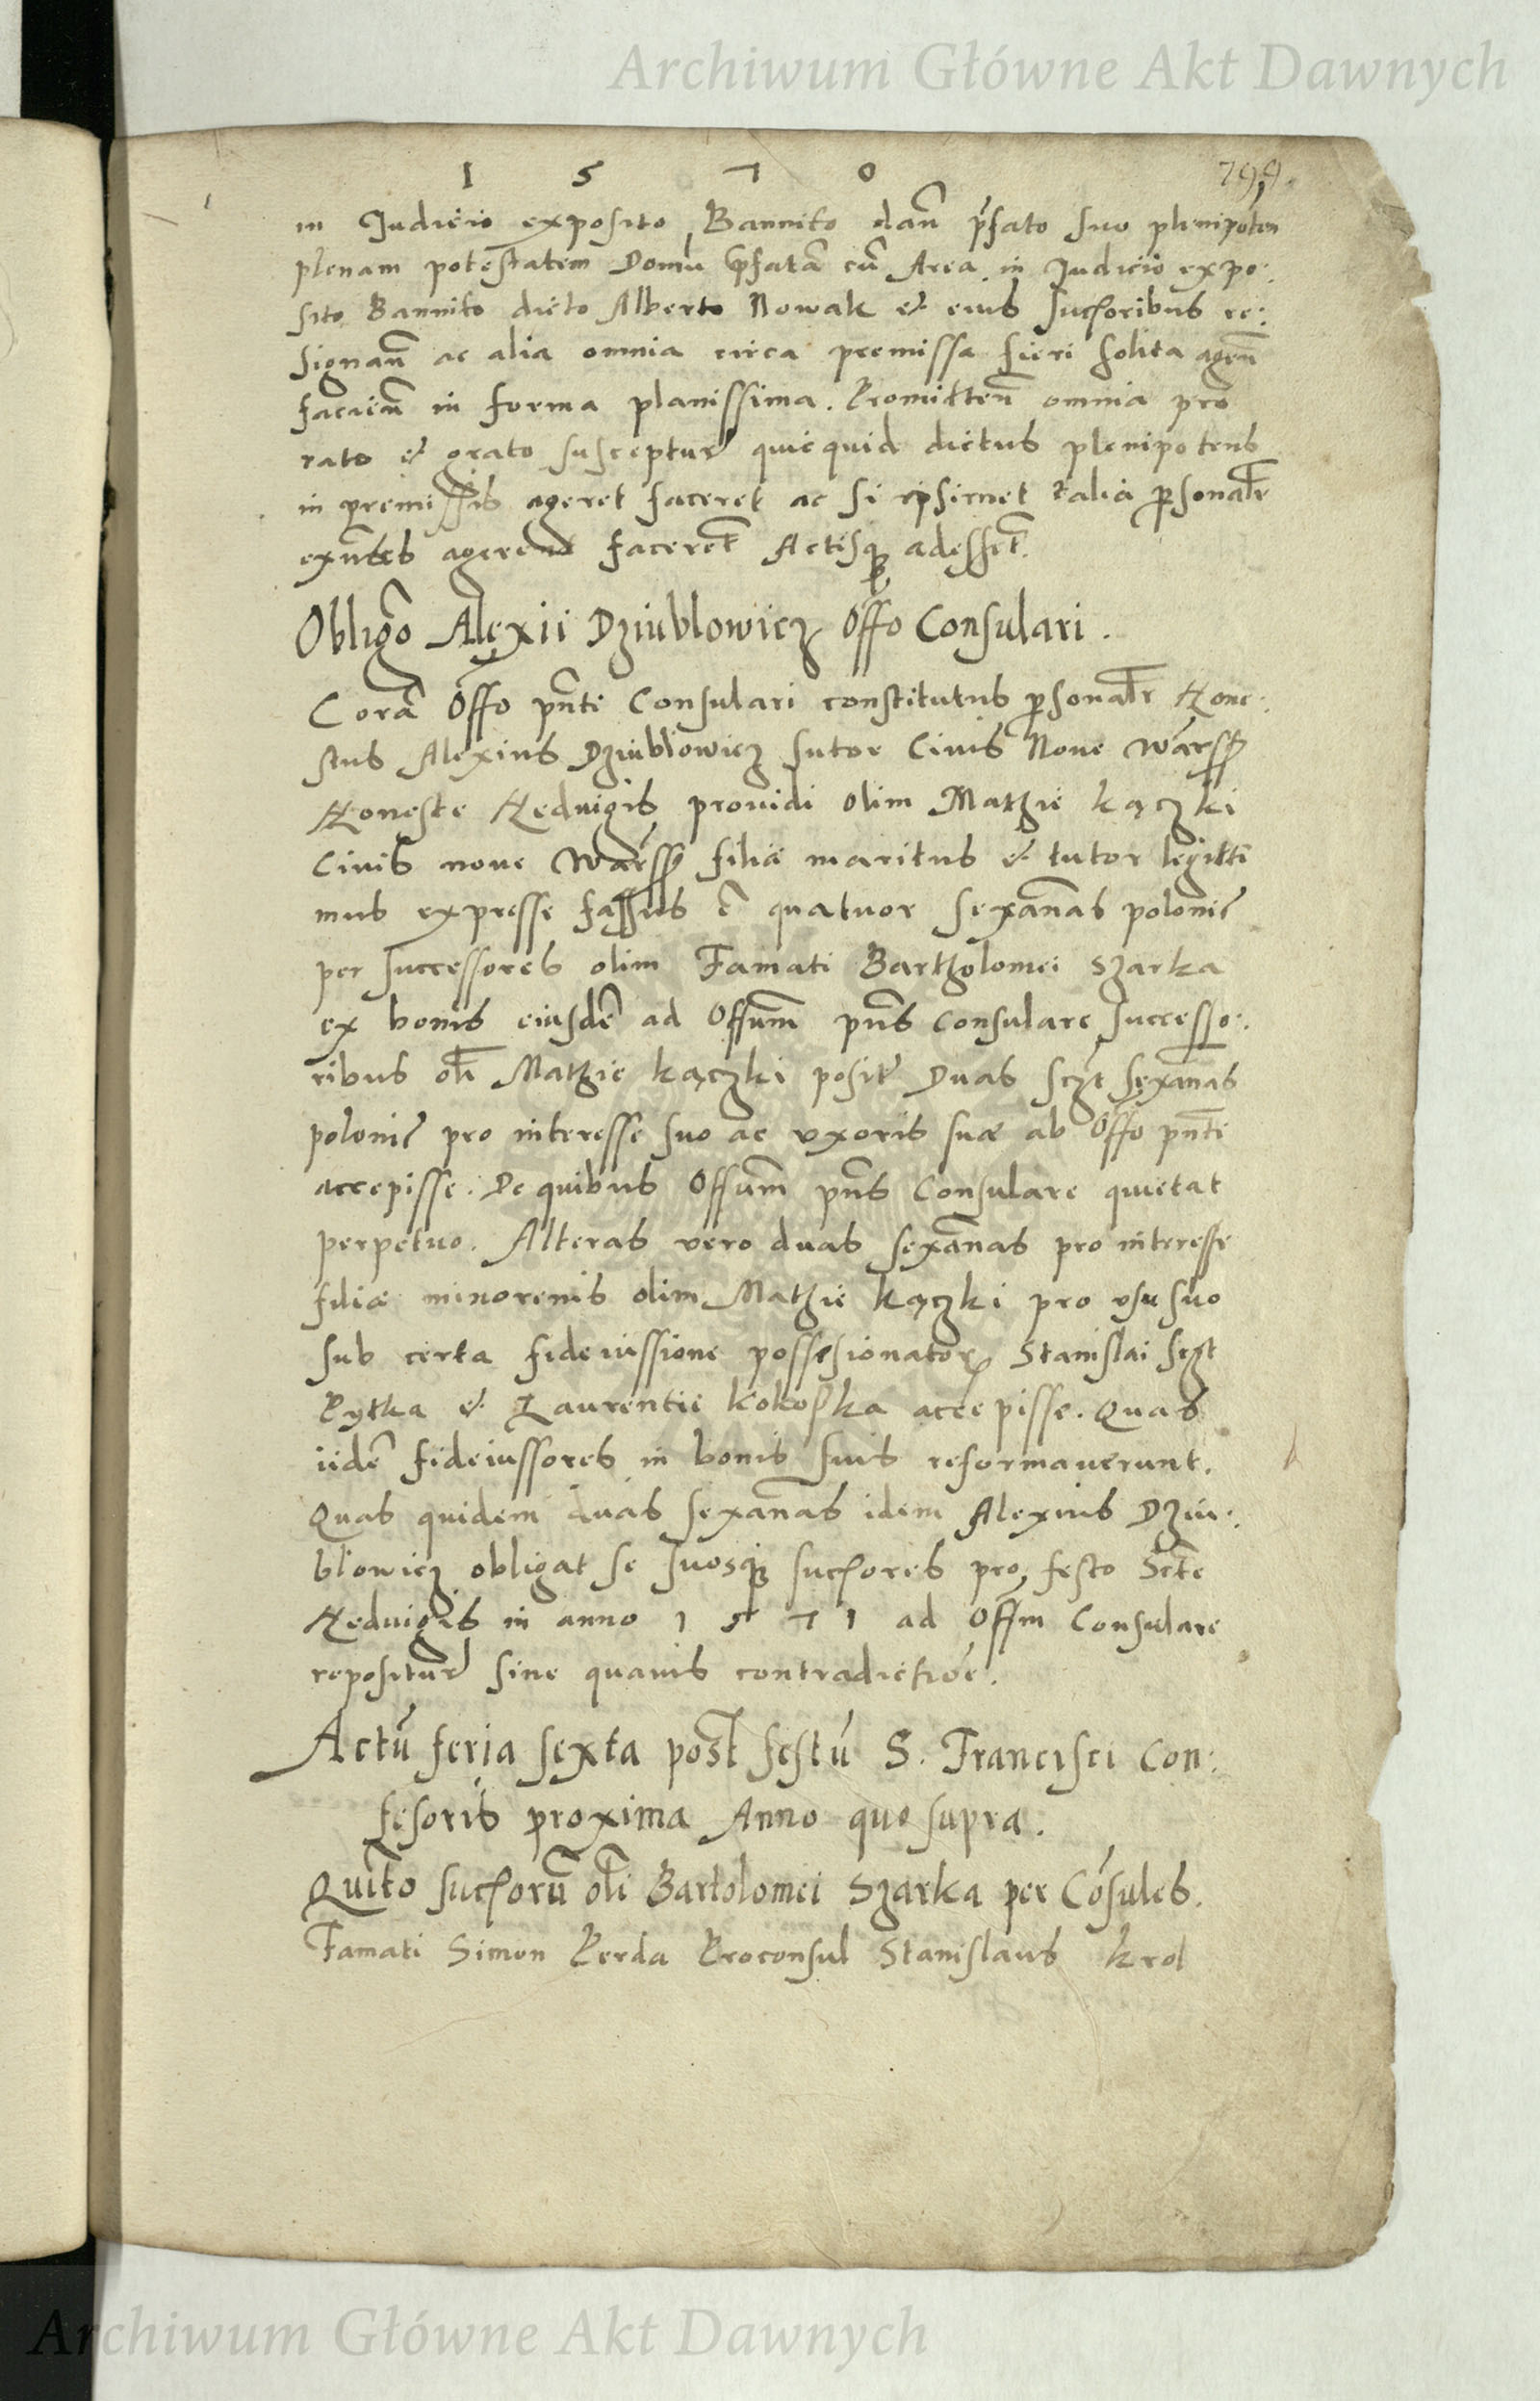 Archiwum Główne Akt Dawnych
1 5 7 0
799.
in Judicio exposito Bannito dañ p̃fato suo plenipoten
plenam potestatem Domũ p̃fatã cũ Area in Judicio expo:
sito Bannito dicto Alberto Nowak et eius succoribus re:
signañ ac alia omnia circa premissa fieri solita ageñ
facieñ in forma planissima. Promitteñ omnia pro
rato et grato susceptur quicquid dictus plenipotens
in premissis ageret faceret ac si ipsimet talia psonalr̃
exñtes agerent faceret̃ Actisq adesset̃.
Obligõ Alexii Dziublowicz Offo Consulari.
Corã Offo pñti Consulari constitutus psonalr̃ Hone:
stus Alexius Dziublowicz sutor Civis Nove Warss
Honeste Hedvigis providi olim Mathie Kączki
Civis nove Warss filiæ maritus et tutor legitti
mus expresse fassus ẽ quatuor sexañas polonic
per successores olim Famati Bartholomei Szarka
ex bonis eiusdẽ ad Offum̃ pñs Consulare successo:
ribus oli̅ Mathie Kączki posit Duas sczt sexañas
polonic pro interesse suo ac vxoris suæ ab Offo pñti
accepisse. De quibus Offum̃ pñs Consulare quietat
perpetuo. Alteras vero duas sexañas pro interesse
filiæ minorenis olim Mathie Kączki pro vsu suo
sub certa fideiussione possesionator Stanislai sczt
Pytka et Laurentii Kokoska accepisse. Quas
iidẽ fideiussores in bonis suis reformaverunt.
Quas quidem duas sexañas idem Alexius Dziu:
blowicz obligat se suosq succores pro festo Scte
Hedvigis in anno 1 5 7 1 ad Offm̃ Consulare
repositur sine quavis contradictiõe.
Actũ feria sexta post festũ S. Francisci Con:
fesoris proxima Anno quo supra.
Quitõ succorũ oli̅ Bartolomei Szarka per Cõsules.
Famati Simon Perda Proconsul Stanislaus Krol
Archiwum Główne Akt Dawnych